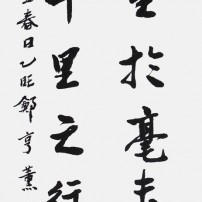 生於毫末
千里之行
春日乙旺鄭亨薰